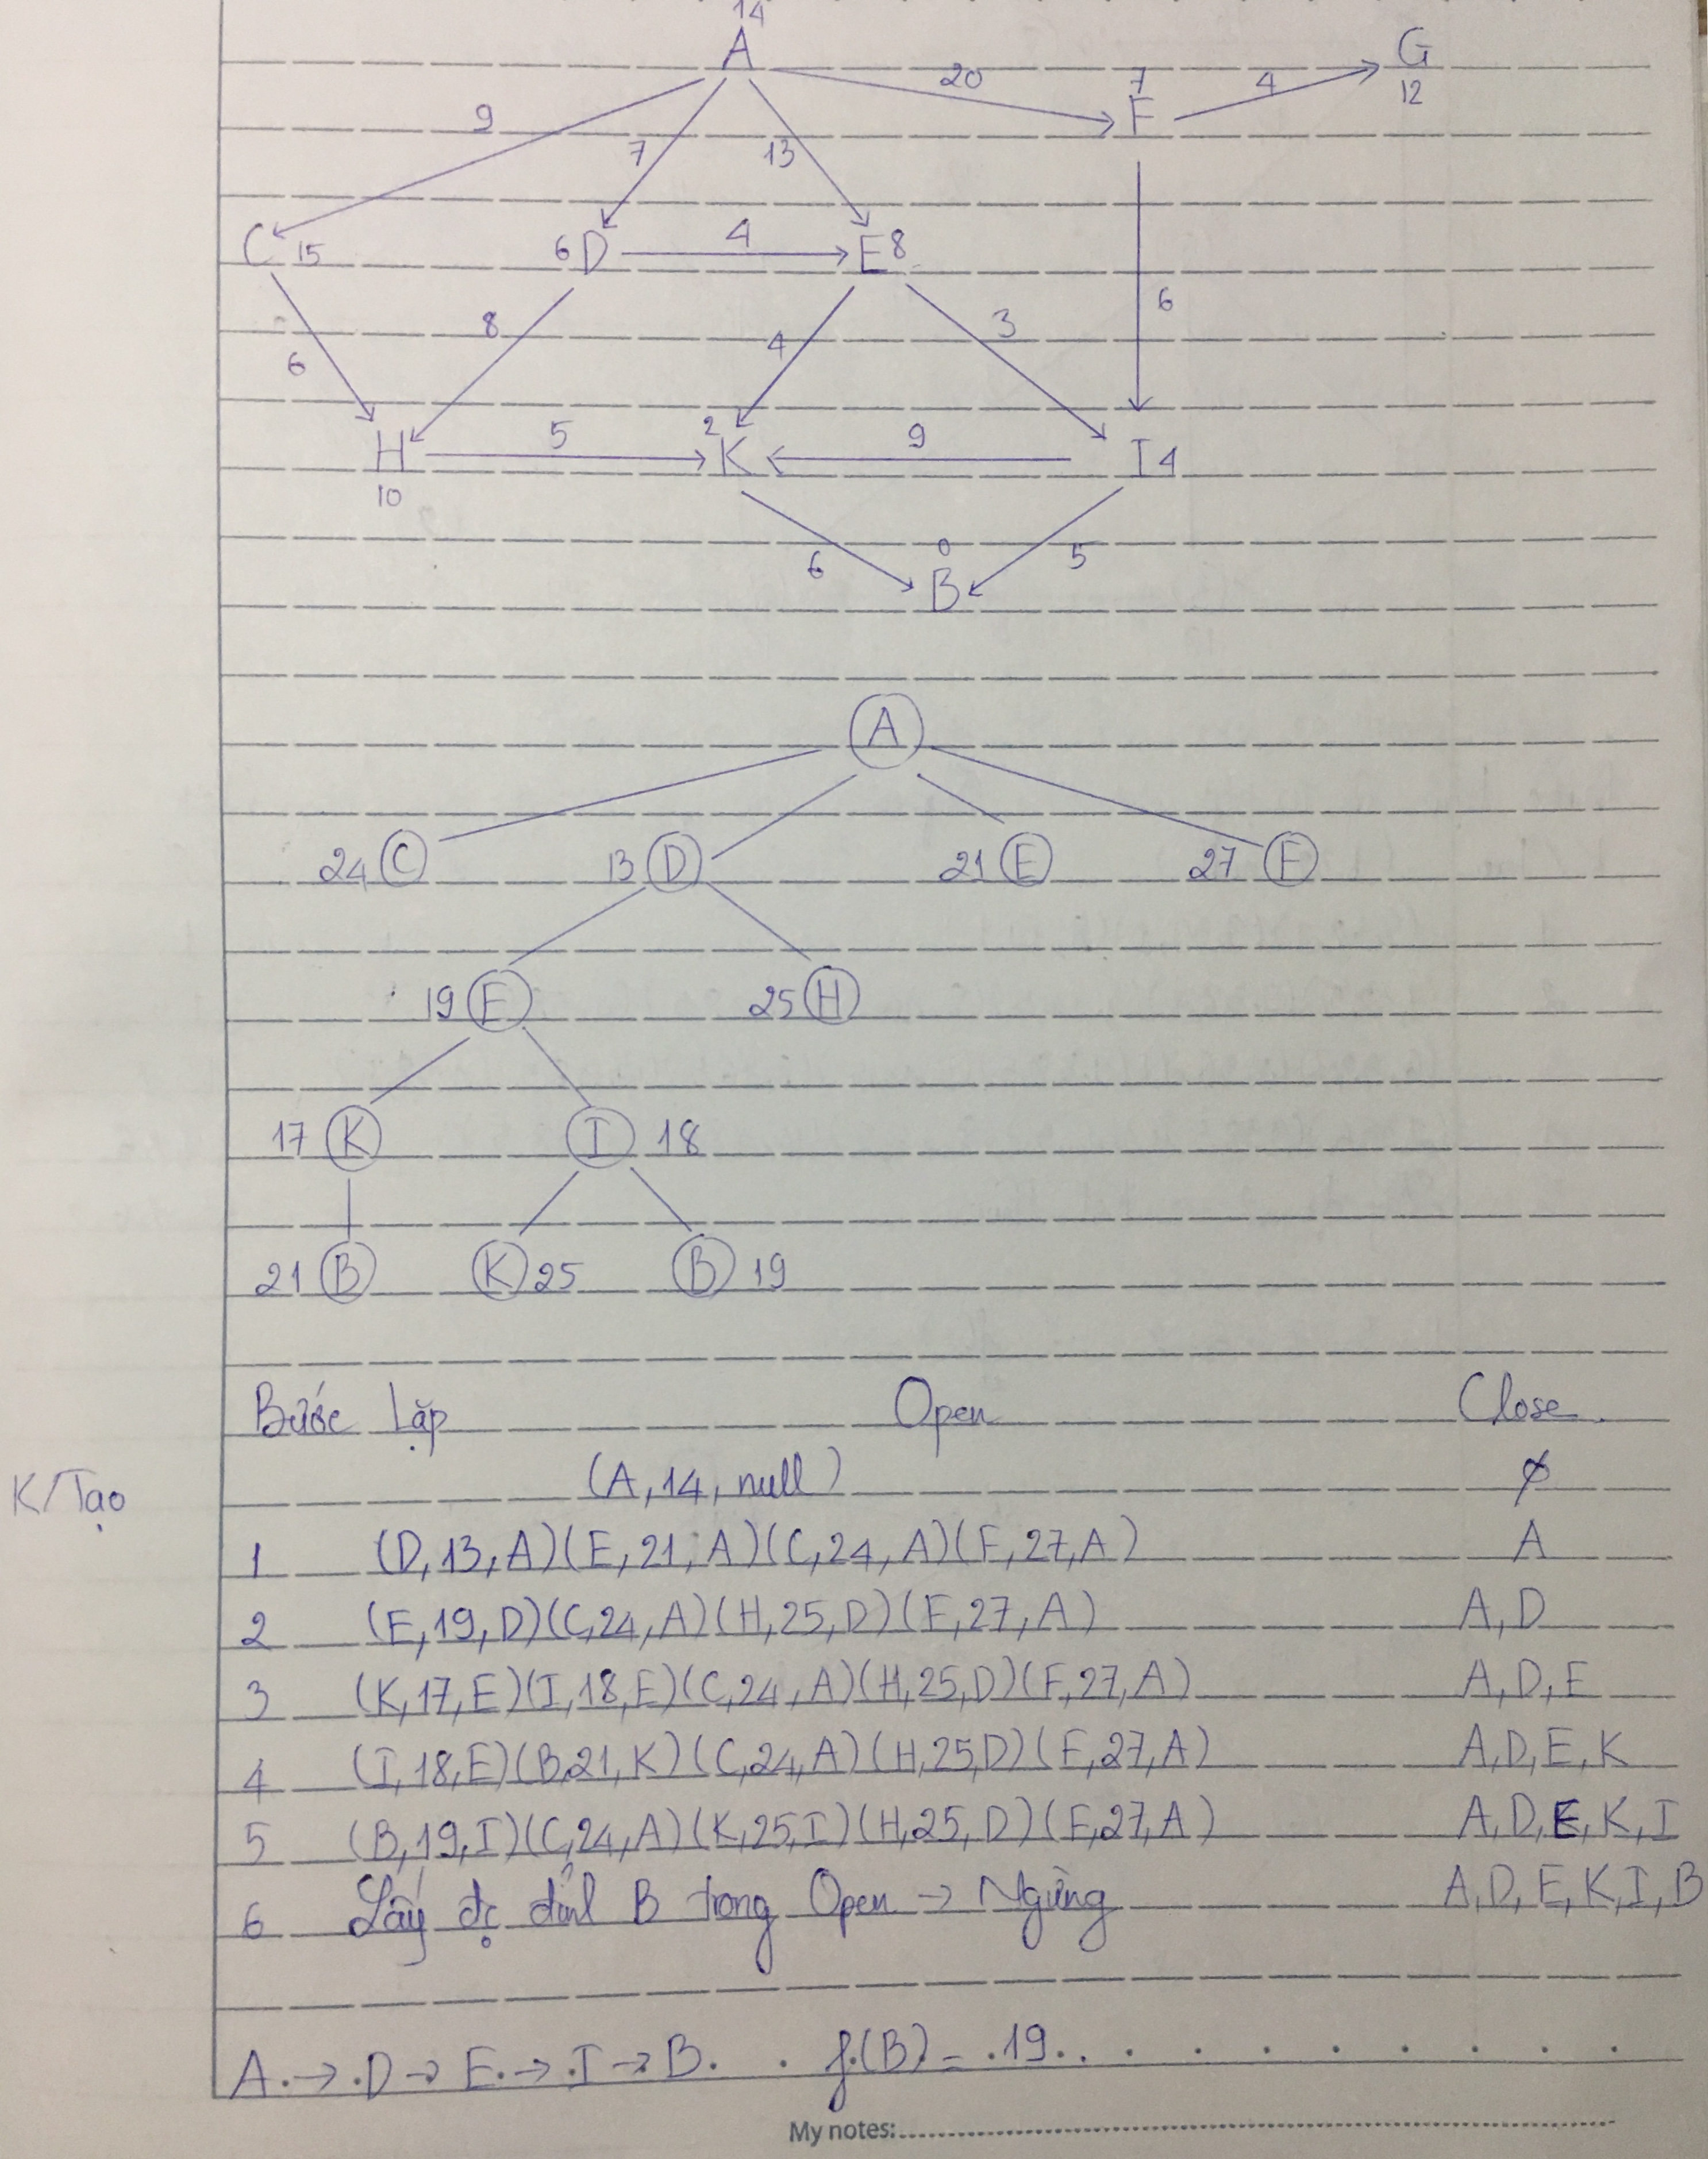 14
A
G
20
7
4
12
F
9
7
13
C 15
6 D
4
E 8
6
8
4
3
6
H
5
2
K
9
I 4
10
6
0
5
B
A
24 C
13 D
21 E
27 F
19 E
25 H
17 K
I 18
21 B
K 25
B 19
Bước Lặp Open Close
K/Tạo (A, 14, null) ∅
1 (D, 13, A) (E, 21, A) (C, 24, A) (F, 27, A) A
2 (E, 19, D) (C, 24, A) (H, 25, D) (F, 27, A) A, D
3 (K, 17, E) (I, 18, E) (C, 24, A) (H, 25, D) (F, 27, A) A, D, E
4 (I, 18, E) (B, 21, K) (C, 24, A) (H, 25, D) (F, 27, A) A, D, E, K
5 (B, 19, I) (C, 24, A) (K, 25, I) (H, 25, D) (F, 27, A) A, D, E, K, I
6 Lấy đc đỉnh B trong Open → Ngừng A, D, E, K, I, B
A → D → E → I → B. f(B) = 19
My notes: